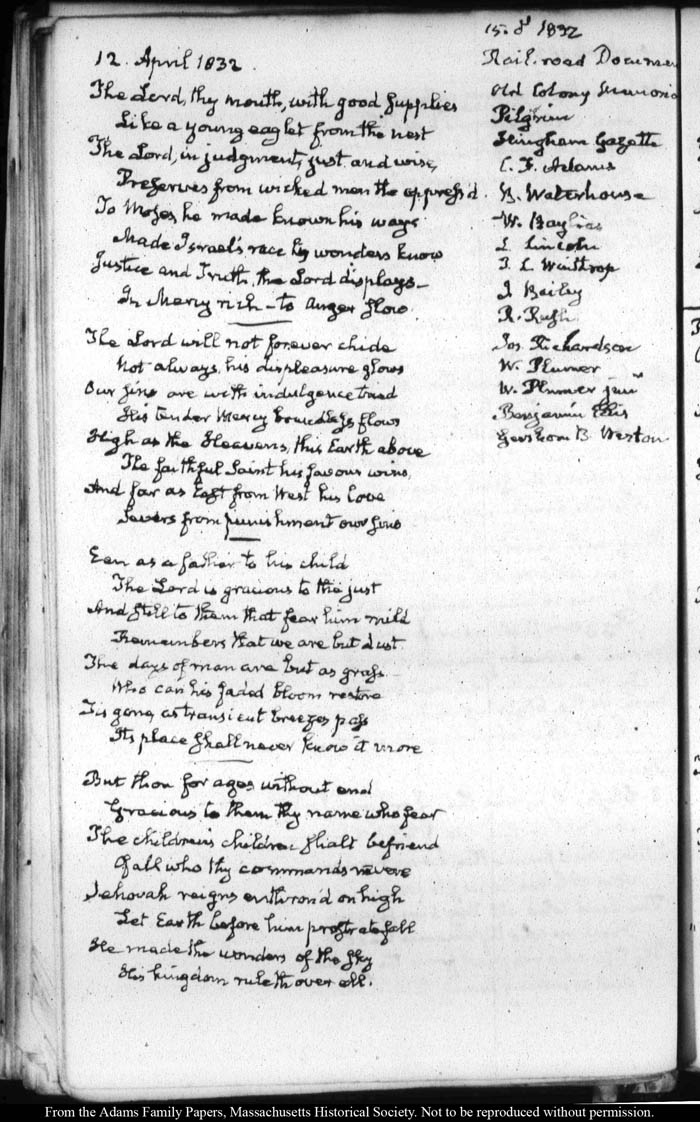 12. April 1832.
The Lord, thy mouth, with good supplies
Like a young eaglet from the nest
The Lord, in judgment, just and wise,
Preserves from wicked men the oppress'd.
To Moses, he made known his ways
Made Israel's race his wonders know
Justice and Truth, the Lord displays—
In Mercy rich—to anger slow.
The Lord will not forever chide
Not always, his displeasure glows
Our sins are with indulgence tried
His tender Mercy boundless flows
High as the Heavens, this Earth above
The faithful Saint his favour wins,
And far as East from West his love
Severs from punishment our sins
Een as a father to his child
The Lord is gracious to the just
And still to them that fear him mild
Remembers that we are but dust.
The days of man are but as grass.
Who can his faded bloom restore
Tis gone, as transient breezes pass
Its place shall never know it more
But thou for ages without end
Gracious to them thy name who fear
The children's children shalt befriend
Of all who thy commands revere
Jehovah reigns enthron'd on high
Let Earth before him prostrate fall
He made the wonders of the sky
His kingdom ruleth over all.
15. 1832
Rail-road
Old Colony
Pilgrim
Hingham Gazette
C. F. Adams
B. Waterhouse
W. Baylies
L Lincoln
T. L. Winthrop
J. Bailey
R. Rush
Jos. Richardson
W. Plumer
W. Plumer junr
Benjamin Ellis
Gershom B. Weston
From the Adams Family Papers, Massachusetts Historical Society. Not to be reproduced without permission.